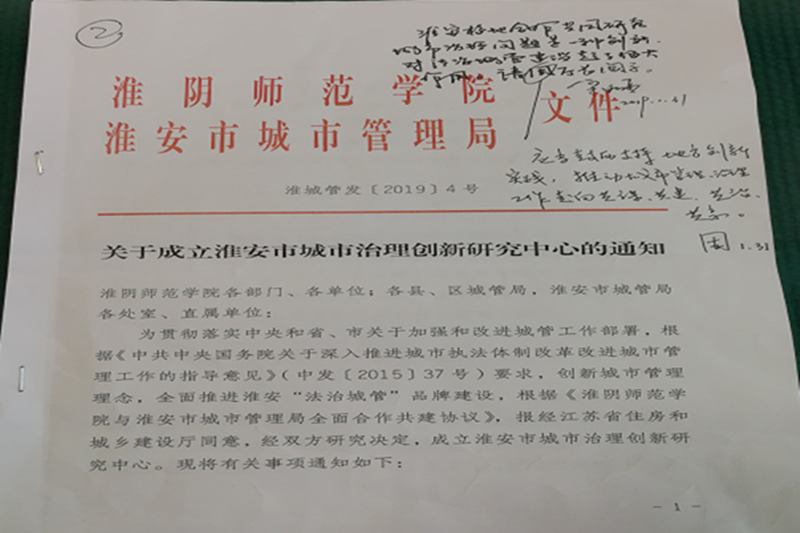 ②
淮安校地合作共同研究
城市治理问题是一种创新,
对
作用。请
2019.1.31
淮阴师范学院
淮安市城市管理局
文件
应当鼓励支持地方创新
实践,推动城市管理、治理
工作走向共谋、共建、共治、
共享。
1.31
淮城管发〔2019〕4号
关于成立淮安市城市治理创新研究中心的通知
淮阴师范学院各部门、各单位;各县、区城管局,淮安市城管局
各处室、直属单位:
为贯彻落实中央和省、市关于加强和改进城管工作部署,根
据《中共中央国务院关于深入推进城市执法体制改革改进城市管
理工作的指导意见》(中发〔2015〕37号)要求,创新城市管理
理念,全面推进淮安“法治城管”品牌建设,根据《淮阴师范学
院与淮安市城市管理局全面合作共建协议》,报经江苏省住房和
城乡建设厅同意,经双方研究决定,成立淮安市城市治理创新研
究中心。现将有关事项通知如下:
- 1 -